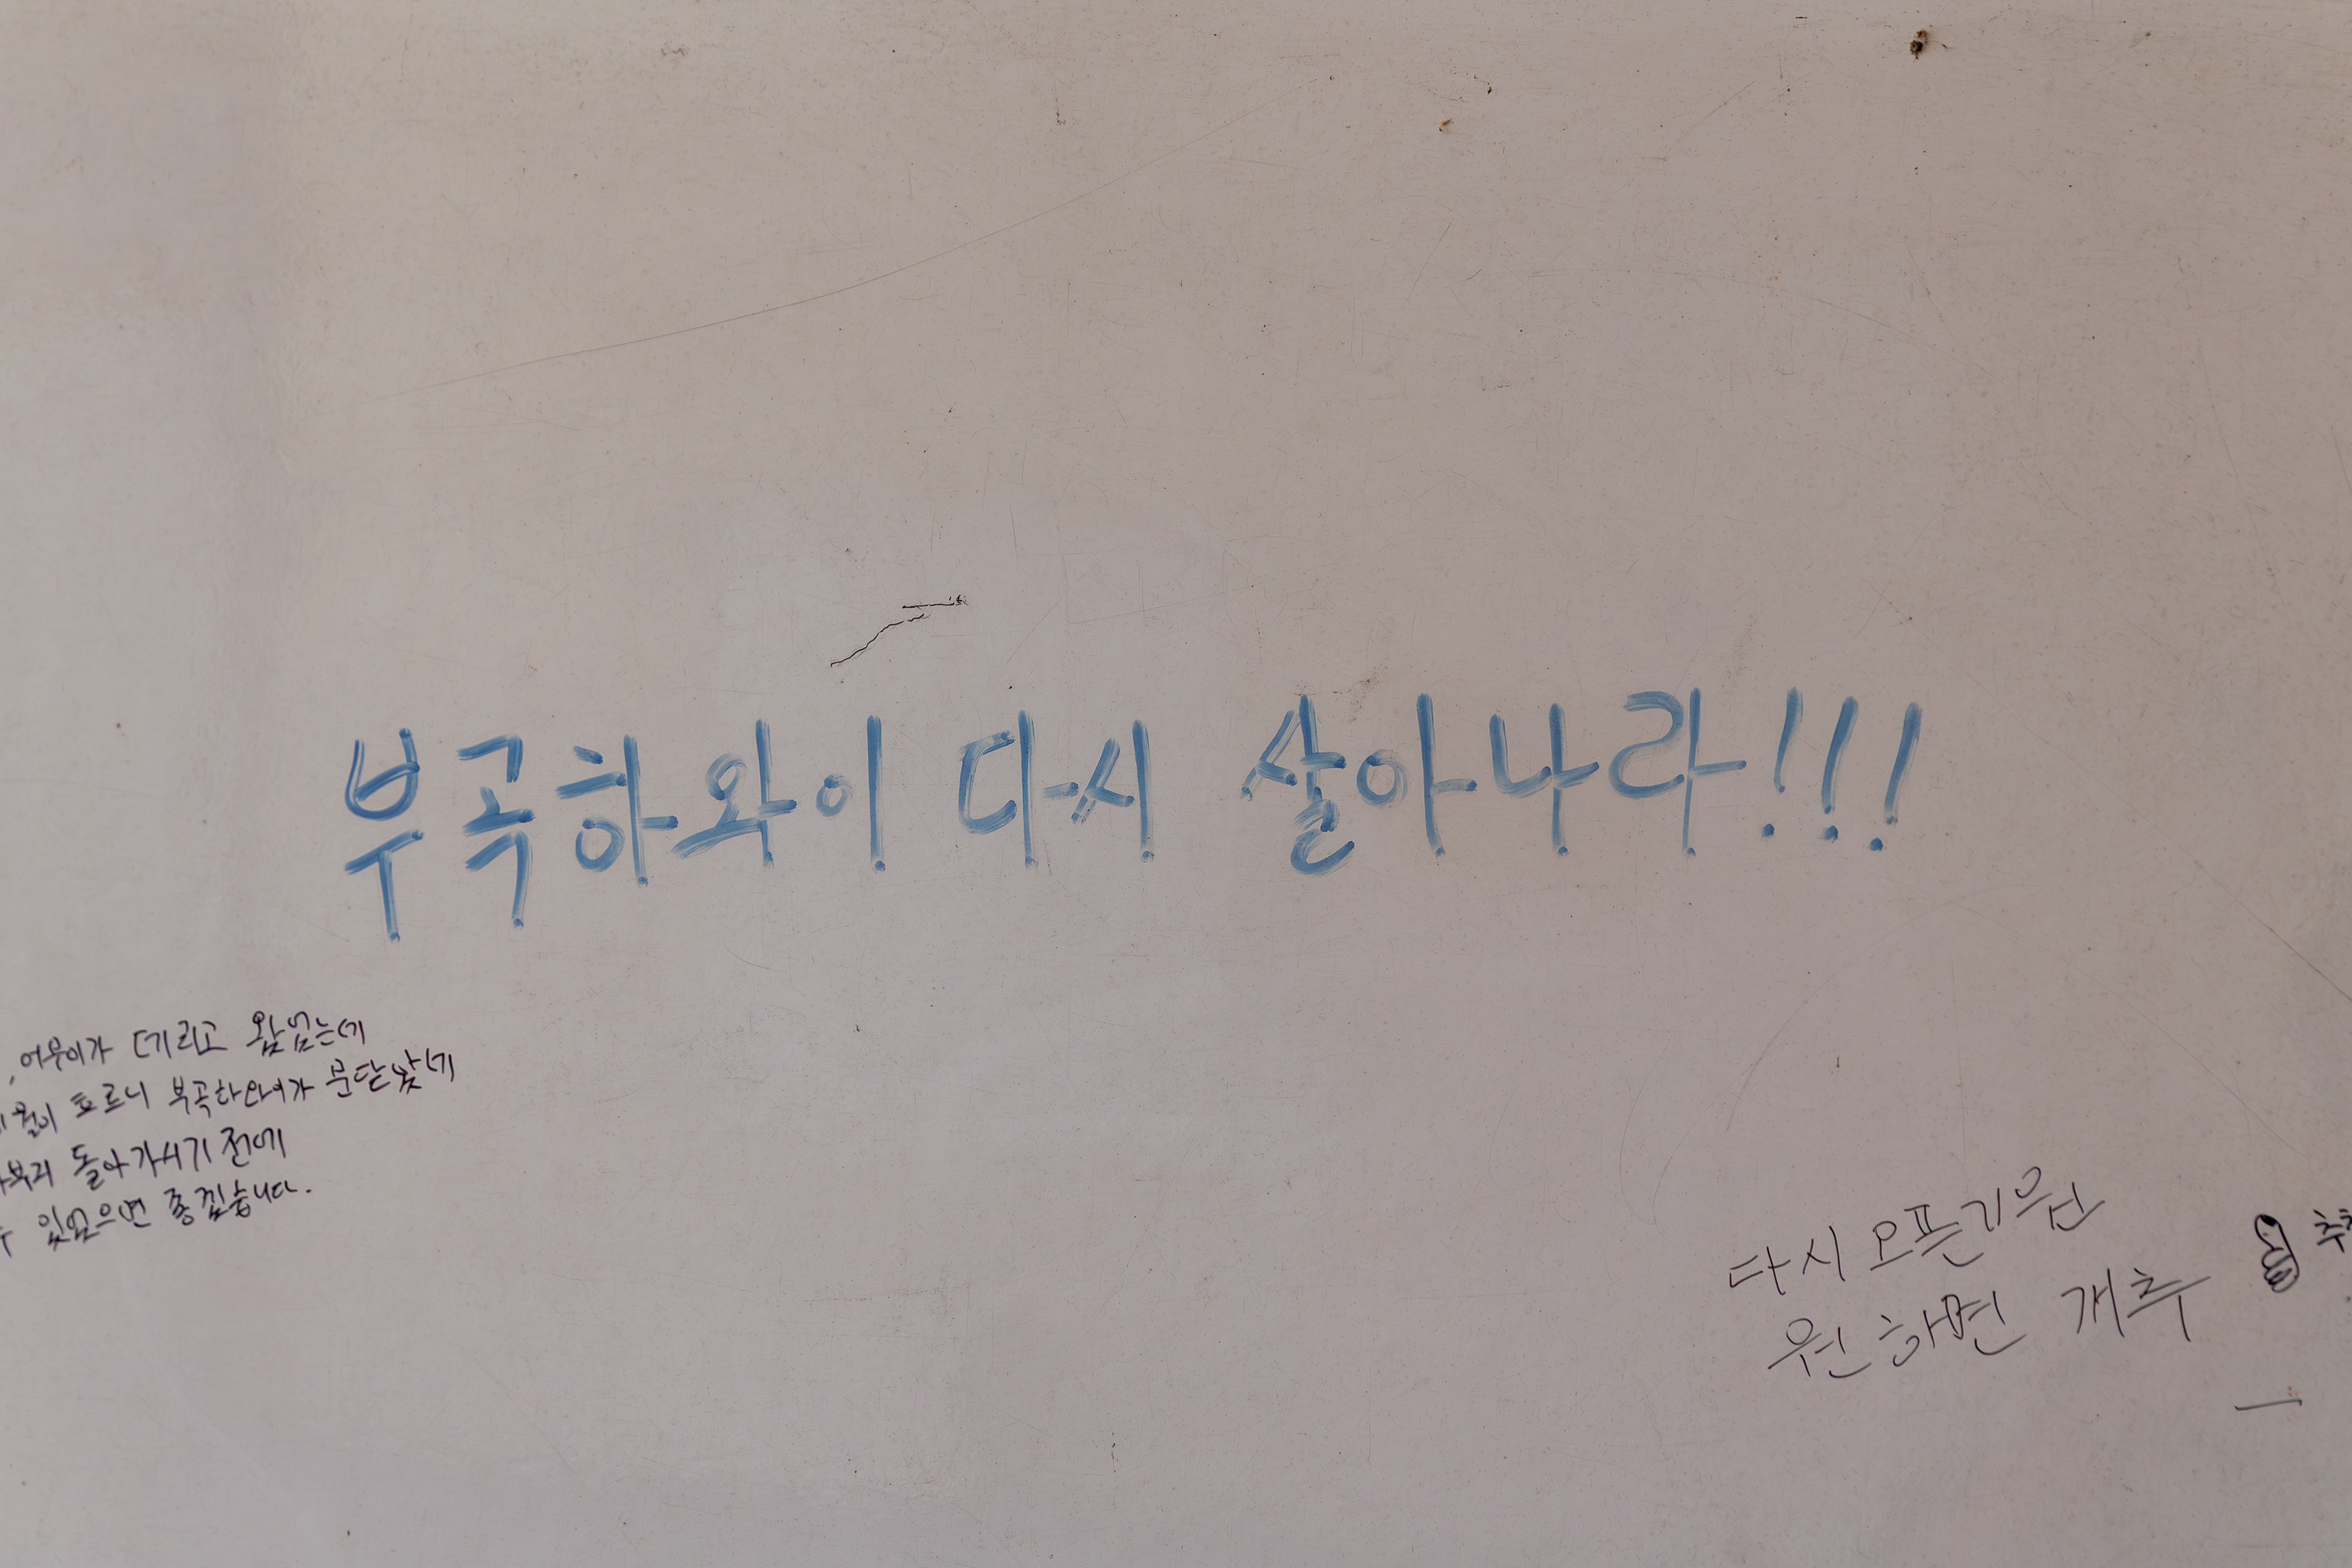 부곡하와이 다시 살아나라!!!
데리고 왔었는데
흐르니 부곡하와이가 문닫았네
돌아가시기 전에
있었으면 좋겠습니다.
다시 오픈기원
원하면 개추